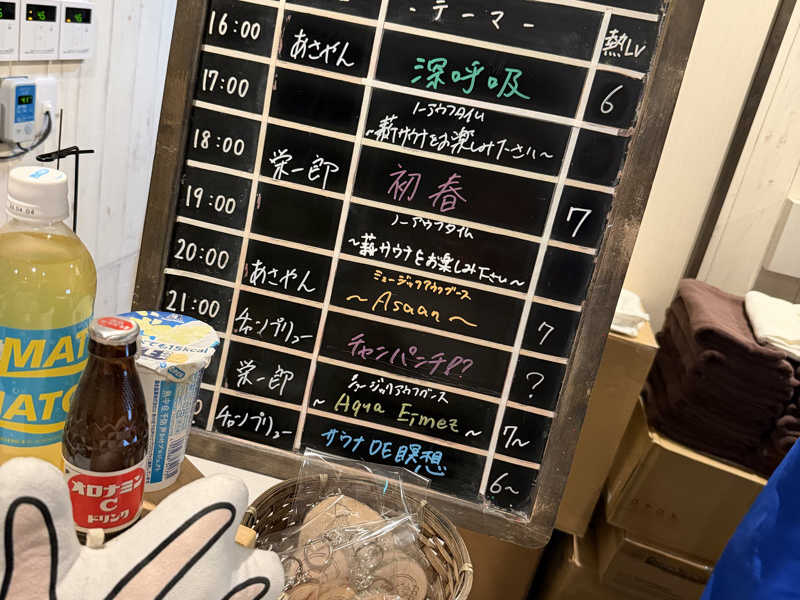 テーマー
熱Lv
16:00 あさやん 深呼吸 6
17:00 ノーアウフタイム
~薪サウナをお楽しみ下さい~
18:00 栄一郎 初春 7
19:00 ノーアウフタイム
~薪サウナをお楽しみ下さい~
20:00 あさやん ミュージックアウフグース
~Asaan~ 7
21:00 チャンプリュー チャンパンチ8? ?
栄一郎 ミュージックアウフグース
~Aqua Eimez~ 7~
チャンプリュー サウナDE瞑想 6~
MAT
MATC
オロナミン
C
ドリンク